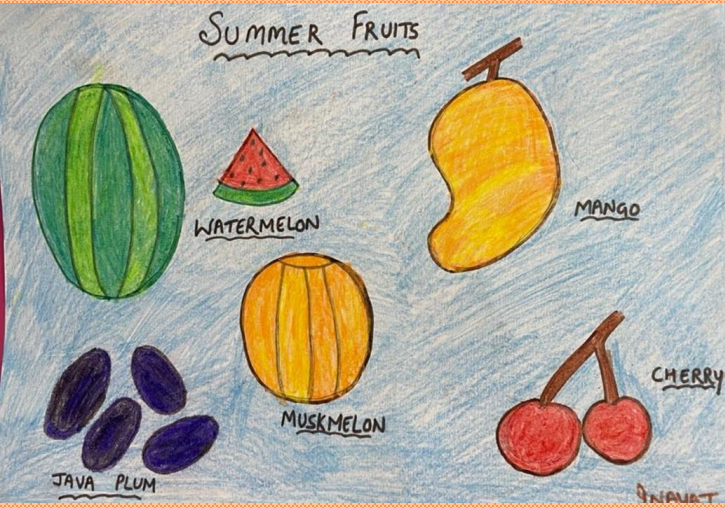 SUMMER FRUITS
WATERMELON
MANGO
MUSKMELON
CHERRY
JAVA PLUM
INAYAT